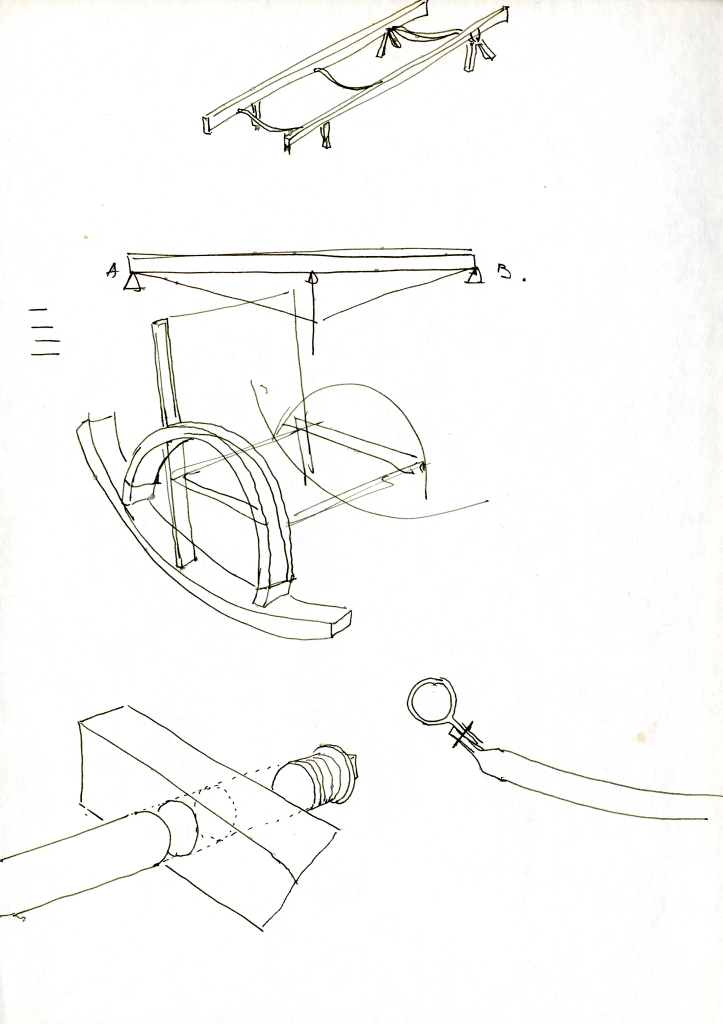 A B.